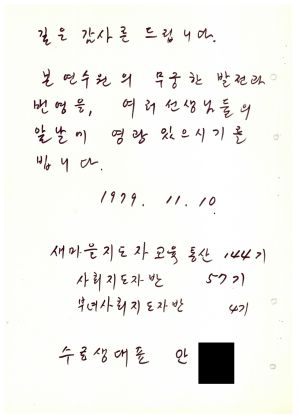 깊은 감사를 드립니다.
본 연수원의 무궁한 발전과
번영을, 여러 선생님들의
앞날에 영광 있으시기를
빕니다.
1979. 11. 10.
새마을지도자교육 통산 144기
사회지도자반 57기
부녀사회지도자반 4기
수료생대표 안